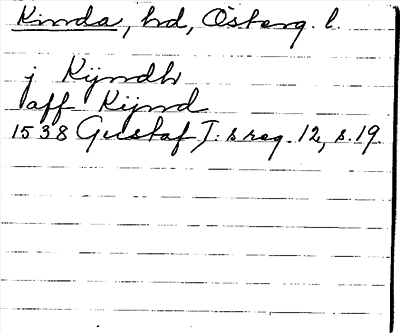 Kinda, hd, Österg. l.
j Kijndh
aff Kijnd
1538 Gustaf I:s reg. 12, s. 19